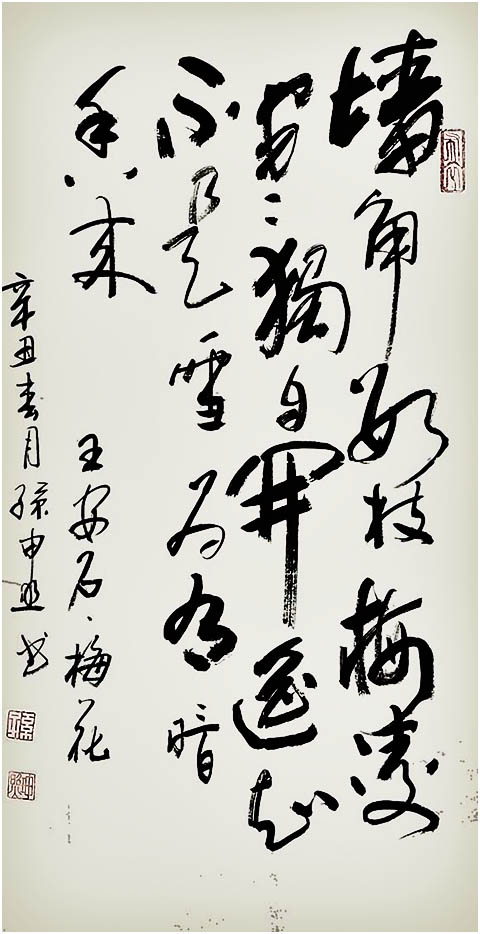 墙角数枝梅凌
寒獨自開遥知
不是雪为有暗
香来
王安石、梅花
辛丑春月孫申书